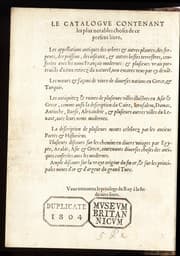 LE CATALOGVE CONTENANT
les plus notables choses de ce
present livre.
Les appellations antiques des arbres & autres plantes, des serpents, des poissons, des oiseaux, & autres bestes terrestres, conferées avec les noms François modernes: & plusieurs vrais pourtraicts d'iceux retirez du naturel, non encores veuz par cy devant.
Les meurs & façons de vivre de diverses nations en Grece, & Turquie.
Les antiquitez & ruines de plusieurs villes illustres en Asie & Grece, comme aussi la description du Caire, Ierusalem, Damas, Antioche, Burse, Alexandrie, & plusieurs autres villes du Levant, avec leurs noms modernes.
La description de plusieurs monts celebrez par les anciens Poetes & Historiens.
Plusieurs discours sur les chemins en divers voyages par Egypte, Arabie, Asie & Grece, contenants diverses choses des antiques conferées avec les modernes.
Ample discours sur la vraye origine du fin or & sur les principales mines d'or & d'argent du grand Turc.
Vous trouverez le privilege du Roy à la fin
du tiers livre.
DUPLICATE
1804
MVSEVM
BRITAN
NICVM